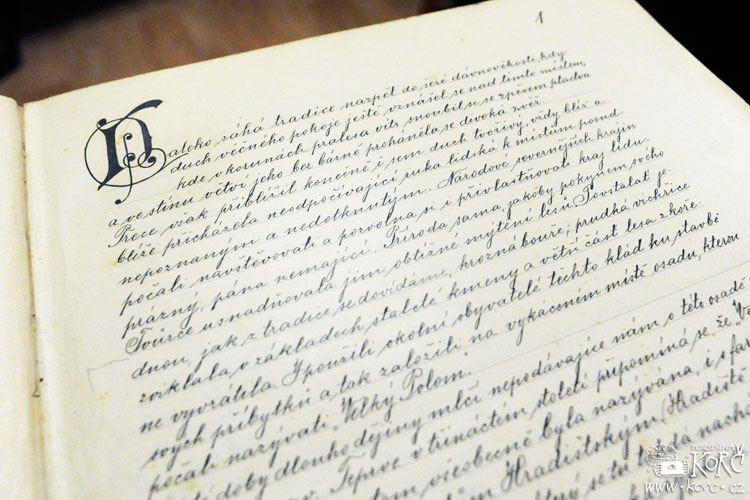 1
Daleko sáhá tradice nazpět do šeré dávnověkosti, kdy
duch věčného pokoje ještě vznášel se nad tímto místem,
kde v korunách pralesa vítr snoubil se se zpěvem ptactva
a ve stínu větví jeho bez bázně proháněla se divoká zvěř.
Přece však přiblížil konečně i sem duch tvořivý, vždy blíž a
blíže přicházela neodpočívající ruka lidská k místům posud
nepoznaným a nedotknutým. Národové severnějších krajin
počali navštěvovati a pozvolna si i přivlastňovati kraj lidu
prázný, pána nemající. Příroda sama, jakoby pokynem svého
Tvůrce usnadňovala jim obtížné mýcení lesů. Povstalať je-
dnou, jak z tradice se dovídáme, hrozná bouře; prudká vichřice
zviklala v základech stoleté kmeny a větší část lesa z koře-
ne vyvrátila. I použili okolní obyvatelé těchto klád ku stavbě
svých příbytků a tak založili na vykáceném místě osadu, kterou
počali nazývati "Velký Polom."
doby dlouho dějiny mlčí nepodávajíce nám o této osadě
Teprve v třináctém století připomíná se, že
všeobecně byla nazývána, i s
Hradištským (Hradiště
se tu
KORČ
www.korc.cz